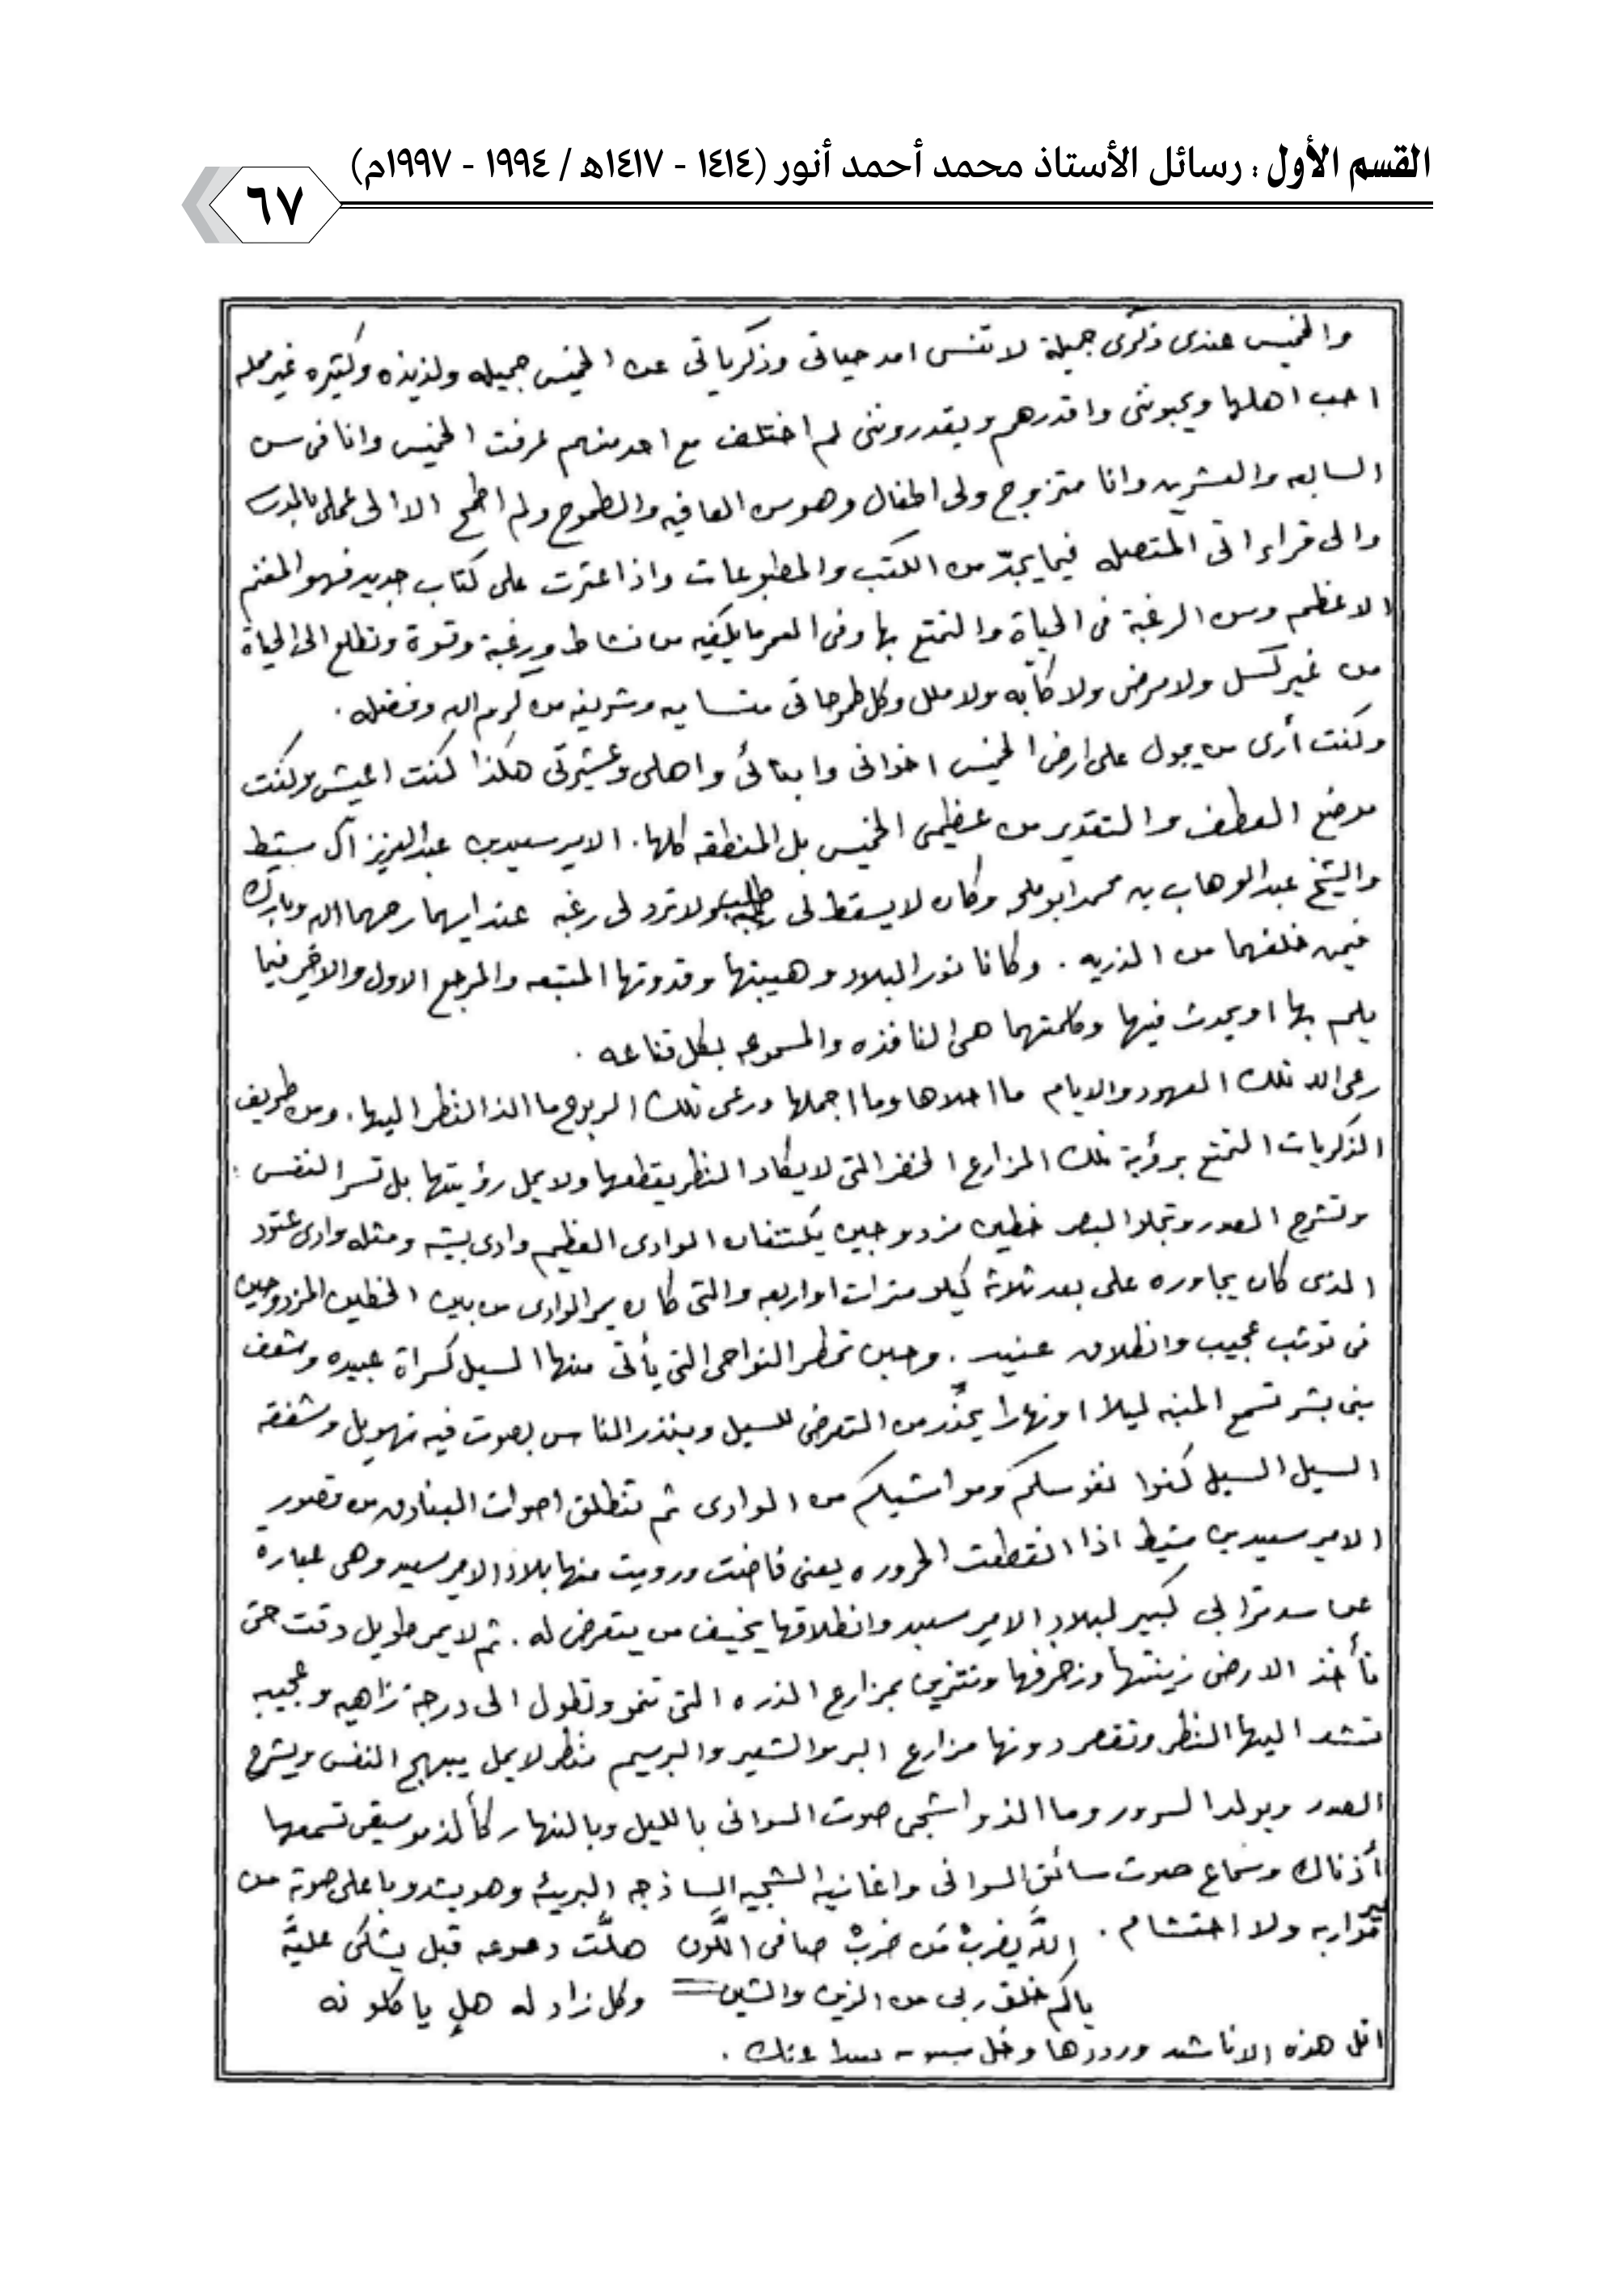 القسم الأول : رسائل الأستاذ محمد أحمد أنور (١٤١٤ - ١٤١٧هـ / ١٩٩٤ - ١٩٩٧م)
٦٧
والخميس عندى ذكرى جميلة لا تنسى امد حياتى وذكرياتى عن الخميس جميله ولذيذه وكثيره غير ممله
احب اهلها ويحبوننى واقدرهم ويقدروننى لم اختلف مع احد منهم عرفت الخميس وانا فى سن
السابعه والعشرين وانا متزوج ولى اطفال وهو سن العافيه والطموح ولم اطمح الا الى عملى بالمدرسه
والى قراءاتى المتصله فيما يجدّ من الكتب والمطبوعات واذا عثرت على كتاب جديد فهو المغنم
الاعظم وسن الرغبة فى الحياة والتمتع بها وفى العمر ما يكفيه من نشاط ورغبة وقوة وتطلع الى الحياة
من غير كسل ولا مرض ولا كآبه ولا ملل وكل طموحاتى متساميه وشريفه من كرم الله وفضله .
وكنت أرى من يجول على ارض الخميس اخوانى وابنائى واهلى وعشيرتى هكذا كنت اعيش وكنت
موضع العطف والتقدير من عظيمى الخميس بل المنطقه كلها . الامير سعيد بن عبدالعزيز آل مشيط
والشيخ عبدالوهاب بن محمد ابو ملحه وكان لا يسقط لى طلب ولا ترد لى رغبه عند ايهما رحمهما الله وبارك
فيمن خلفهما من الذريه . وكانا نور البلاد وهيبتها وقدوتها المتبعه والمرجع الاول والاخير فيما
يلم بها او يحدث فيها وكلمتهما هى النافذه والمسموعه بكل قناعه .
رعى الله تلك العهود والايام ما احلاها وما اجملها ورعى تلك الربوع ما الذ النظر اليها . ومن طريف
الذكريات التمتع برؤية تلك المزارع الخضر التى لا يكاد النظر يقطعها ولا يمل رؤيتها بل تسر النفس
وتشرح الصدر وتجلو البصر خطين مزدوجين يكتنفان الوادى العظيم وادى بيشه ومثله وادى عتود
الذى كان يجاوره على بعد ثلاثة كيلو مترات او اربعه والتى كان يمر الوادى من بين الخطين المزدوجين
فى توثب عجيب وانطلاق عنيد . وحين تمطر النواحى التى يأتى منها السيل كسراة عبيده وشعف
بنى بشر تسمع المنبه ليلا او نهارا يحذّر من التعرض للسيل وينذر الناس بصوت فيه تهويل وشفقه
السيل السيل كفوا نفوسكم ومواشيكم من الوادى ثم تنطلق اصوات البنادق من قصور
الامير سعيد بن مشيط اذا انقطعت الحروره يعنى فاضت ورويت منها بلاد الامير سعيد وهى عبارة
عن سد ترابى كبير لبلاد الامير سعيد وانطلاقها يخيف من يتعرض له . ثم لا يمر طويل وقت حتى
تأخذ الارض زينتها وزخرفها وتتزين بمزارع الذره التى تنمو وتطول الى درجة زاهيه وعجيبه
تشد اليها النظر وتقصر دونها مزارع البر والشعير والبرسيم منظر لا يمل يبهج النفس ويشرح
الصدر ويولد السرور وما الذ واشجى صوت السوانى بالليل وبالنهار كألذ موسيقى تسمعها
أذناك وسماع صوت سائق السوانى واغانيه الشجيه الساذجه البريئه وهو يشدو باعلى صوته من
غير مواربه ولا احتشام . الله يضربْ مَن ضربْ صافى اللّون هلّت دموعه قبل يشكى عليّه
ياكم خلق ربى من الزين والشين = وكل زاد له هلٍ ياكلونه
اتل هذه الاناشد ورددها وخل عنك .